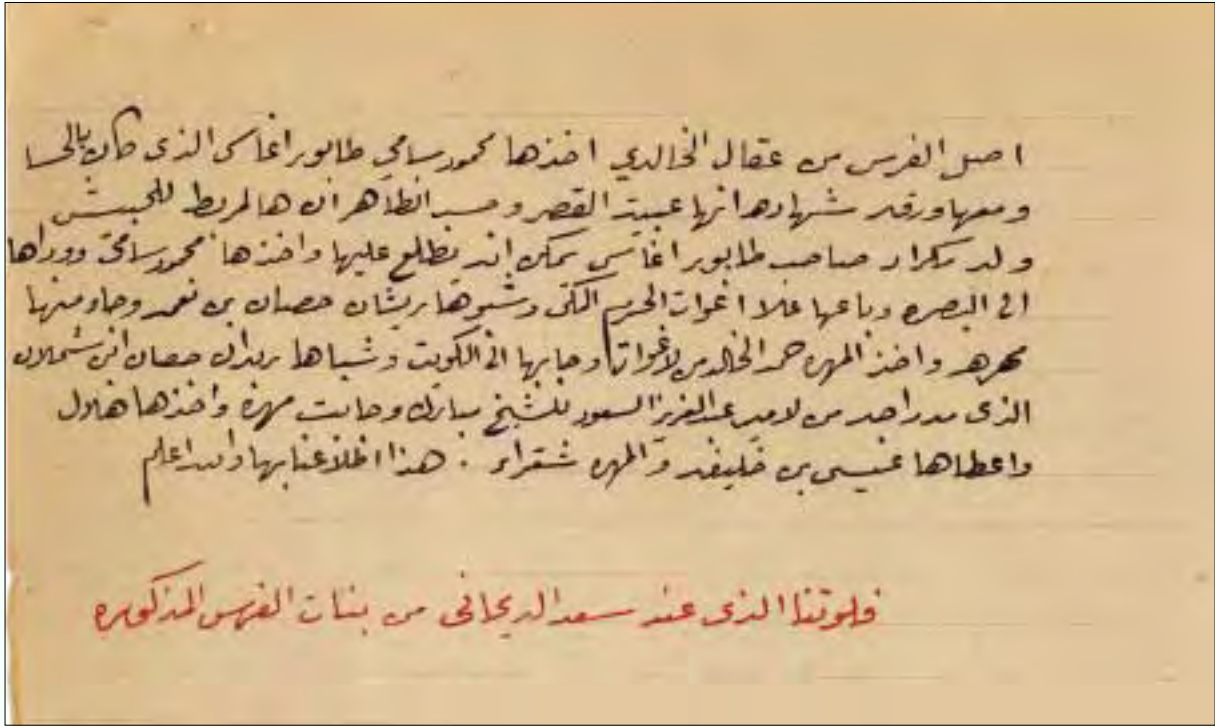 اصل الفرس من عقال الخالدي اخذها محمود سامي طابور اغاسي الذي كان بالحسا
ومعها ورقة شهاده انها عبيت القصر وحسب الظاهر ان هالمربط للحبيش
ولد مكراد صاحب طابور اغاسي يمكن انه تطلع عليها واخذها محمود سامي ووداها
الى البصره وباعها على اغوات الحرم المكي وشبوها ريشان حصان بن نعمه وجاء منها
مهره واخذ المهره حمد الخالد من لاغوات وجابها الى الكويت وشباها حصان ابن شملان
الذي من لامير عبدالعزيز السعود للشيخ مبارك وجابت مهرة واخذها هزاول
واعطاها عيسى بن خليفه والمهره شقراء . هذا اطلاعنا بها والله اعلم
فلوتنا الذي عند سعد الديحاني من بنات الفرس المذكوره